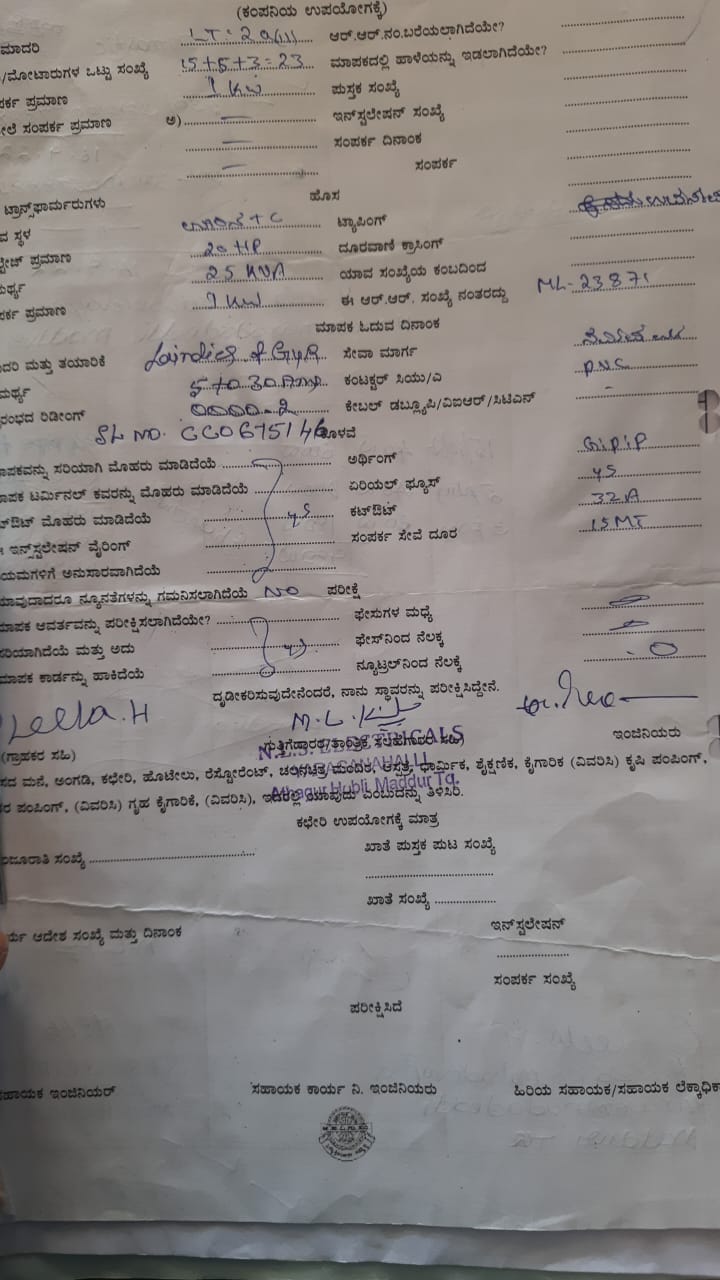 (ಕಂಪನಿಯ ಉಪಯೋಗಕ್ಕೆ)
ಮಾದರಿ LT: 2a(iii) ಆರ್.ಆರ್.ನಂ.ಬರೆಯಲಾಗಿದೆಯೇ?
/ಮೋಟಾರುಗಳ ಒಟ್ಟು ಸಂಖ್ಯೆ 15+5+3=23 ಮಾಪಕದಲ್ಲಿ ಹಾಳೆಯನ್ನು ಇಡಲಾಗಿದೆಯೇ?
ಪರ್ಕ ಪ್ರಮಾಣ 1 KW ಪುಸ್ತಕ ಸಂಖ್ಯೆ
ಲೆ ಸಂಪರ್ಕ ಪ್ರಮಾಣ ಅ) – ಇನ್‌ಸ್ಟಲೇಷನ್ ಸಂಖ್ಯೆ
– ಸಂಪರ್ಕ ದಿನಾಂಕ
– ಸಂಪರ್ಕ
ಹೊಸ
ಟ್ರಾನ್ಸ್‌ಫಾರ್ಮರುಗಳು
ವ ಸ್ಥಳ T C ಟ್ಯಾಪಿಂಗ್
ಪ್ರಮಾಣ 20 HP ದೂರವಾಣಿ ಕ್ರಾಸಿಂಗ್
ಮರ್ಥ್ಯ 25 KVA ಯಾವ ಸಂಖ್ಯೆಯ ಕಂಬದಿಂದ
ಪರ್ಕ ಪ್ರಮಾಣ 1 KW ಈ ಆರ್.ಆರ್. ಸಂಖ್ಯೆ ನಂತರದ್ದು ML-23871
ಮಾಪಕ ಓದುವ ದಿನಾಂಕ
ದರಿ ಮತ್ತು ತಯಾರಿಕೆ ಸೇವಾ ಮಾರ್ಗ
ಮರ್ಥ್ಯ 5 to 30 Amp ಕಂಟಕ್ಟರ್ ಸಿಯು/ಎ P.V.C.
ರಂಭದ ರಿಡೀಂಗ್ 0000-2 ಕೇಬಲ್ ಡಬ್ಲ್ಯೂಪಿ/ವಿಐಆರ್/ಸಿಟಿಎನ್ –
SL NO. CC0675146 ಕೊಳವೆ
ಾಪಕವನ್ನು ಸರಿಯಾಗಿ ಮೊಹರು ಮಾಡಿದೆಯೆ ಅರ್ಥಿಂಗ್ G.I.P.I.P
ಾಪಕ ಟರ್ಮಿನಲ್ ಕವರನ್ನು ಮೊಹರು ಮಾಡಿದೆಯೆ ಏರಿಯಲ್ ಫ್ಯೂಸ್ ys
ಟ್‌ಔಟ್ ಮೊಹರು ಮಾಡಿದೆಯೆ ys ಕಟ್‌ಔಟ್ 32A
ಇನ್‌ಸ್ಟಲೇಷನ್ ವೈರಿಂಗ್ ಸಂಪರ್ಕ ಸೇವೆ ದೂರ 15 MT
ಯಮಗಳಿಗೆ ಅನುಸಾರವಾಗಿದೆಯೆ
ಯಾವುದಾದರೂ ನ್ಯೂನತೆಗಳನ್ನು ಗಮನಿಸಲಾಗಿದೆಯೆ NO ಪರೀಕ್ಷೆ
ಮಾಪಕ ಆವರ್ತವನ್ನು ಪರೀಕ್ಷಿಸಲಾಗಿದೆಯೇ? ಫೇಸುಗಳ ಮಧ್ಯೆ
ರಿಯಾಗಿದೆಯೆ ಮತ್ತು ಅದು ys ಫೇಸ್‌ನಿಂದ ನೆಲಕ್ಕ
ಮಾಪಕ ಕಾರ್ಡನ್ನು ಹಾಕಿದೆಯೆ ನ್ಯೂಟ್ರಲ್‌ನಿಂದ ನೆಲಕ್ಕೆ 0
ದೃಢೀಕರಿಸುವುದೇನೆಂದರೆ, ನಾನು ಸ್ಥಾವರನ್ನು ಪರೀಕ್ಷಿಸಿದ್ದೇನೆ.
Leela.H
(ಗ್ರಾಹಕರ ಸಹಿ) ಗುತ್ತಿಗೆದಾರರ/ತಾಂತ್ರಿಕ ಸಲಹೆಗಾರರ ಸಹಿ) ಇಂಜಿನಿಯರು
ELECTRICALS
Athagur Hubli, Maddur Tq.
ಸದ ಮನೆ, ಅಂಗಡಿ, ಕಛೇರಿ, ಹೊಟೇಲು, ರೆಸ್ಟೋರೆಂಟ್, ಚಲನಚಿತ್ರ ಮಂದಿರ, ಆಸ್ಪತ್ರೆ, ಧಾರ್ಮಿಕ, ಶೈಕ್ಷಣಿಕ, ಕೈಗಾರಿಕ (ವಿವರಿಸಿ) ಕೃಷಿ ಪಂಪಿಂಗ್,
ರ ಪಂಪಿಂಗ್, (ವಿವರಿಸಿ) ಗೃಹ ಕೈಗಾರಿಕೆ, (ವಿವರಿಸಿ), ಇದರಲ್ಲಿ ಯಾವುದು ಎಂಬುದನ್ನು ತಿಳಿಸಿರಿ.
ಕಛೇರಿ ಉಪಯೋಗಕ್ಕೆ ಮಾತ್ರ
ಂಜೂರಾತಿ ಸಂಖ್ಯೆ ಖಾತೆ ಪುಸ್ತಕ ಪುಟ ಸಂಖ್ಯೆ
ಖಾತೆ ಸಂಖ್ಯೆ
ರ್ಯ ಆದೇಶ ಸಂಖ್ಯೆ ಮತ್ತು ದಿನಾಂಕ ಇನ್‌ಸ್ಟಲೇಷನ್
ಸಂಪರ್ಕ ಸಂಖ್ಯೆ
ಪರೀಕ್ಷಿಸಿದೆ
ಸಹಾಯಕ ಇಂಜಿನಿಯರ್ ಸಹಾಯಕ ಕಾರ್ಯ ನಿ. ಇಂಜಿನಿಯರು ಹಿರಿಯ ಸಹಾಯಕ/ಸಹಾಯಕ ಲೆಕ್ಕಾಧಿಕ